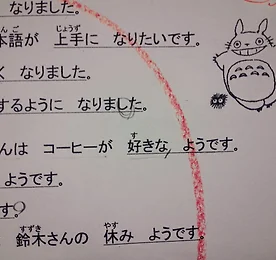 なりました。
本語が 上手に なりたいです。
く なりました。
するように なりました。
んは コーヒーが 好きな ようです。
ようです。
す。
鈴木さんの 休み ようです。